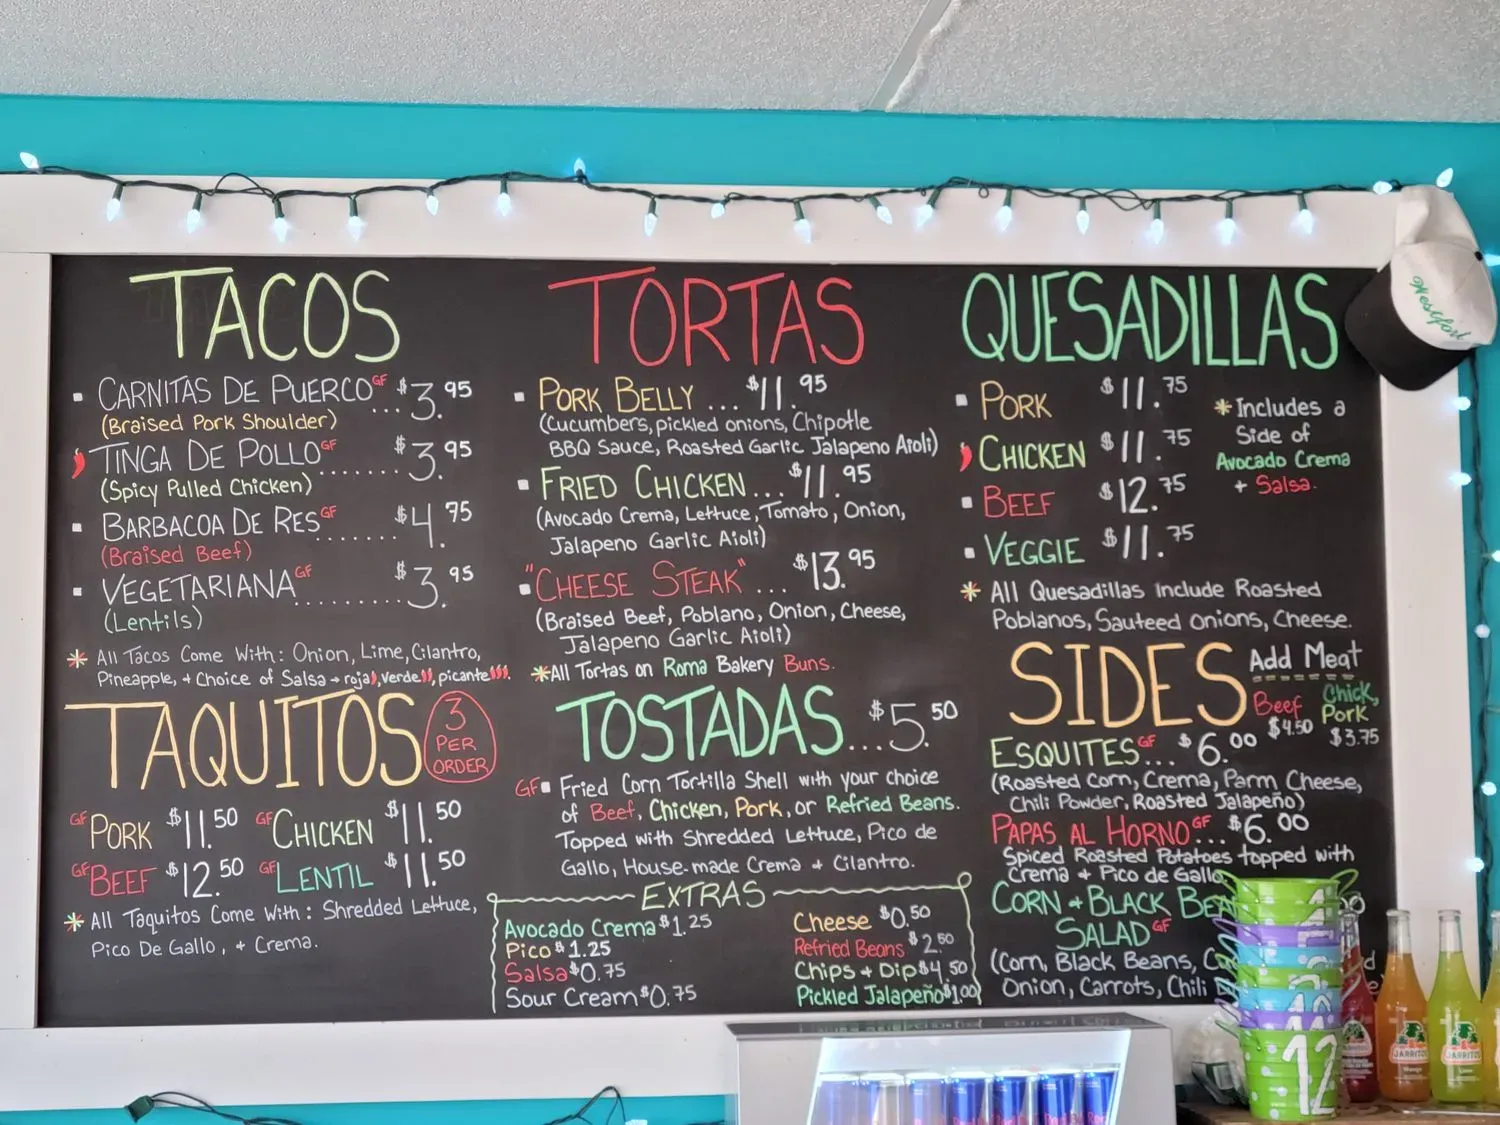 TACOS
▪ CARNITAS DE PUERCO GF ... $3.95
(Braised Pork Shoulder)
TINGA DE POLLO GF ....... $3.95
(Spicy Pulled Chicken)
▪ BARBACOA DE RES GF ....... $4.75
(Braised Beef)
▪ VEGETARIANA GF ......... $3.95
(Lentils)
* All Tacos Come With: Onion, Lime, Cilantro,
Pineapple, + Choice of Salsa → roja, verde, picante.
TAQUITOS
3
PER
ORDER
GF PORK $11.50 GF CHICKEN $11.50
GF BEEF $12.50 GF LENTIL $11.50
* All Taquitos Come With: Shredded Lettuce,
Pico De Gallo, + Crema.
TORTAS
▪ PORK BELLY ... $11.95
(Cucumbers, pickled onions, Chipotle
BBQ Sauce, Roasted Garlic Jalapeno Aioli)
▪ FRIED CHICKEN ... $11.95
(Avocado Crema, Lettuce, Tomato, Onion,
Jalapeno Garlic Aioli)
▪ "CHEESE STEAK" ... $13.95
(Braised Beef, Poblano, Onion, Cheese,
Jalapeno Garlic Aioli)
* All Tortas on Roma Bakery Buns.
TOSTADAS ... $5.50
GF ▪ Fried Corn Tortilla Shell with your choice
of Beef, Chicken, Pork, or Refried Beans.
Topped with Shredded Lettuce, Pico de
Gallo, House-made Crema + Cilantro.
EXTRAS
Avocado Crema $1.25
Pico $1.25
Salsa $0.75
Sour Cream $0.75
Cheese $0.50
Refried Beans $2.50
Chips + Dip $4.50
Pickled Jalapeño $1.00
QUESADILLAS
▪ PORK $11.75
CHICKEN $11.75
▪ BEEF $12.75
▪ VEGGIE $11.75
* Includes a
Side of
Avocado Crema
+ Salsa.
* All Quesadillas Include Roasted
Poblanos, Sauteed onions, Cheese.
SIDES
Add Meat
Beef $4.50
Chick, Pork $3.75
ESQUITES GF ... $6.00
(Roasted Corn, Crema, Parm Cheese,
Chili Powder, Roasted Jalapeño)
PAPAS AL HORNO GF ... $6.00
Spiced Roasted Potatoes topped with
Crema + Pico de Gallo
CORN + BLACK BEA
SALAD GF
(Corn, Black Beans,
Onion, Carrots, Chili
Westfort
12
JARRITOS
Mango
JARRITOS
Lime